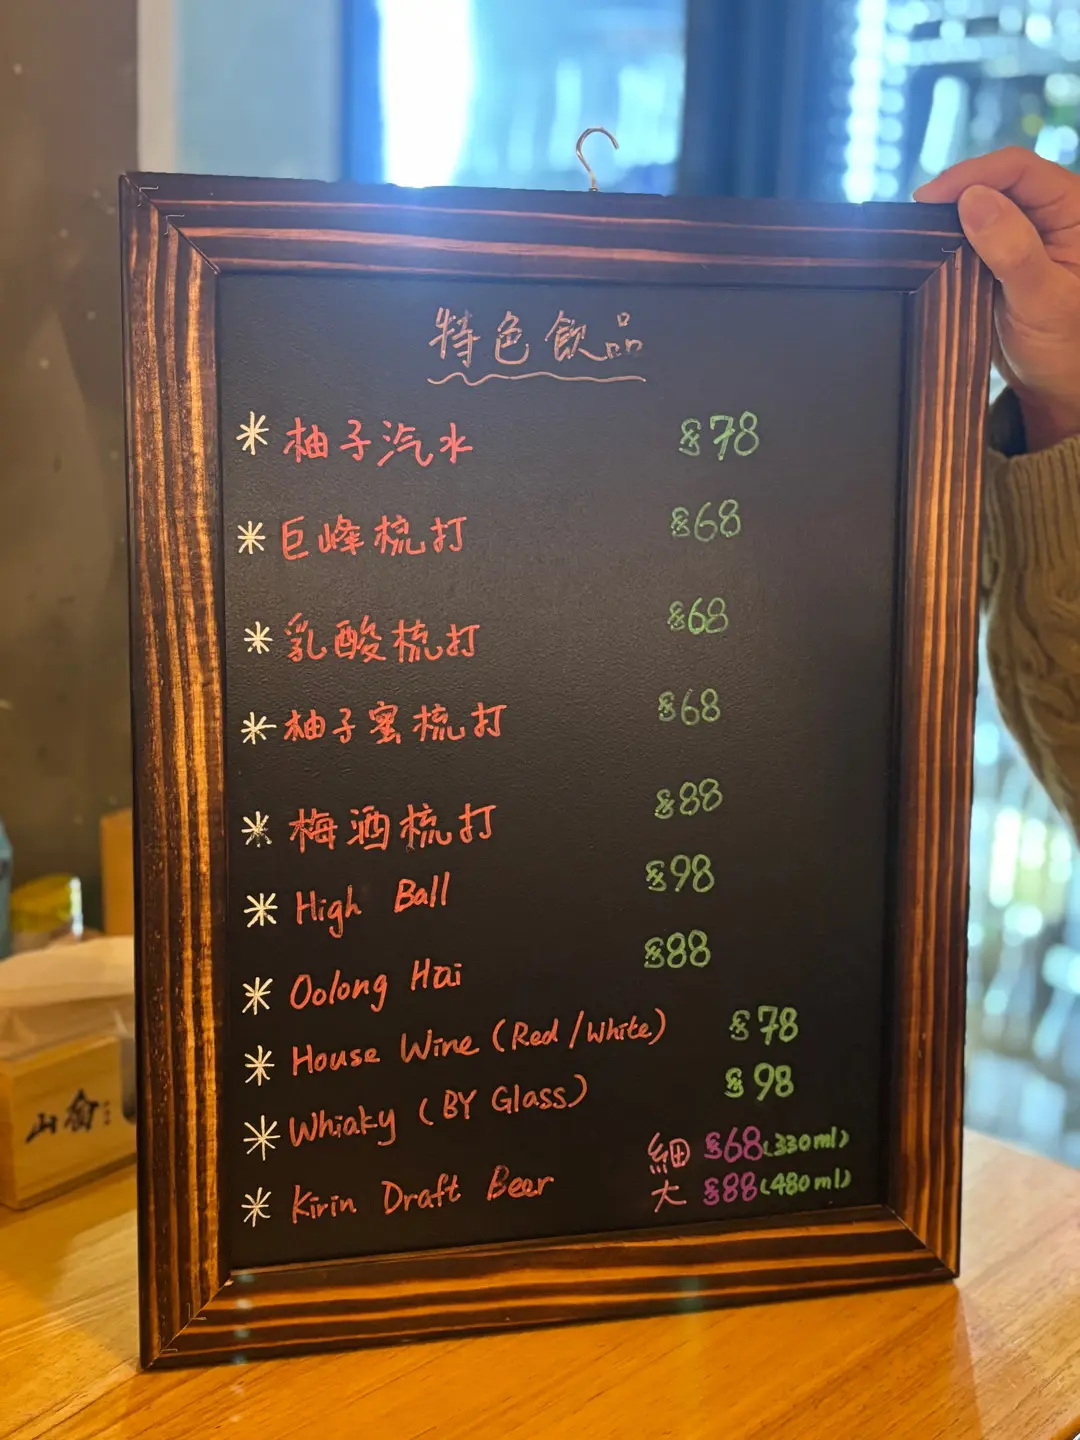 特色飲品
* 柚子汽水 $78
* 巨峰梳打 $68
* 乳酸梳打 $68
* 柚子蜜梳打 $68
* 梅酒梳打 $88
* High Ball $98
* Oolong Hai $88
* House Wine (Red/White) $78
* Whiaky (BY Glass) $98
* Kirin Draft Beer 細 $68 (330ml)
大 $88 (480ml)
山